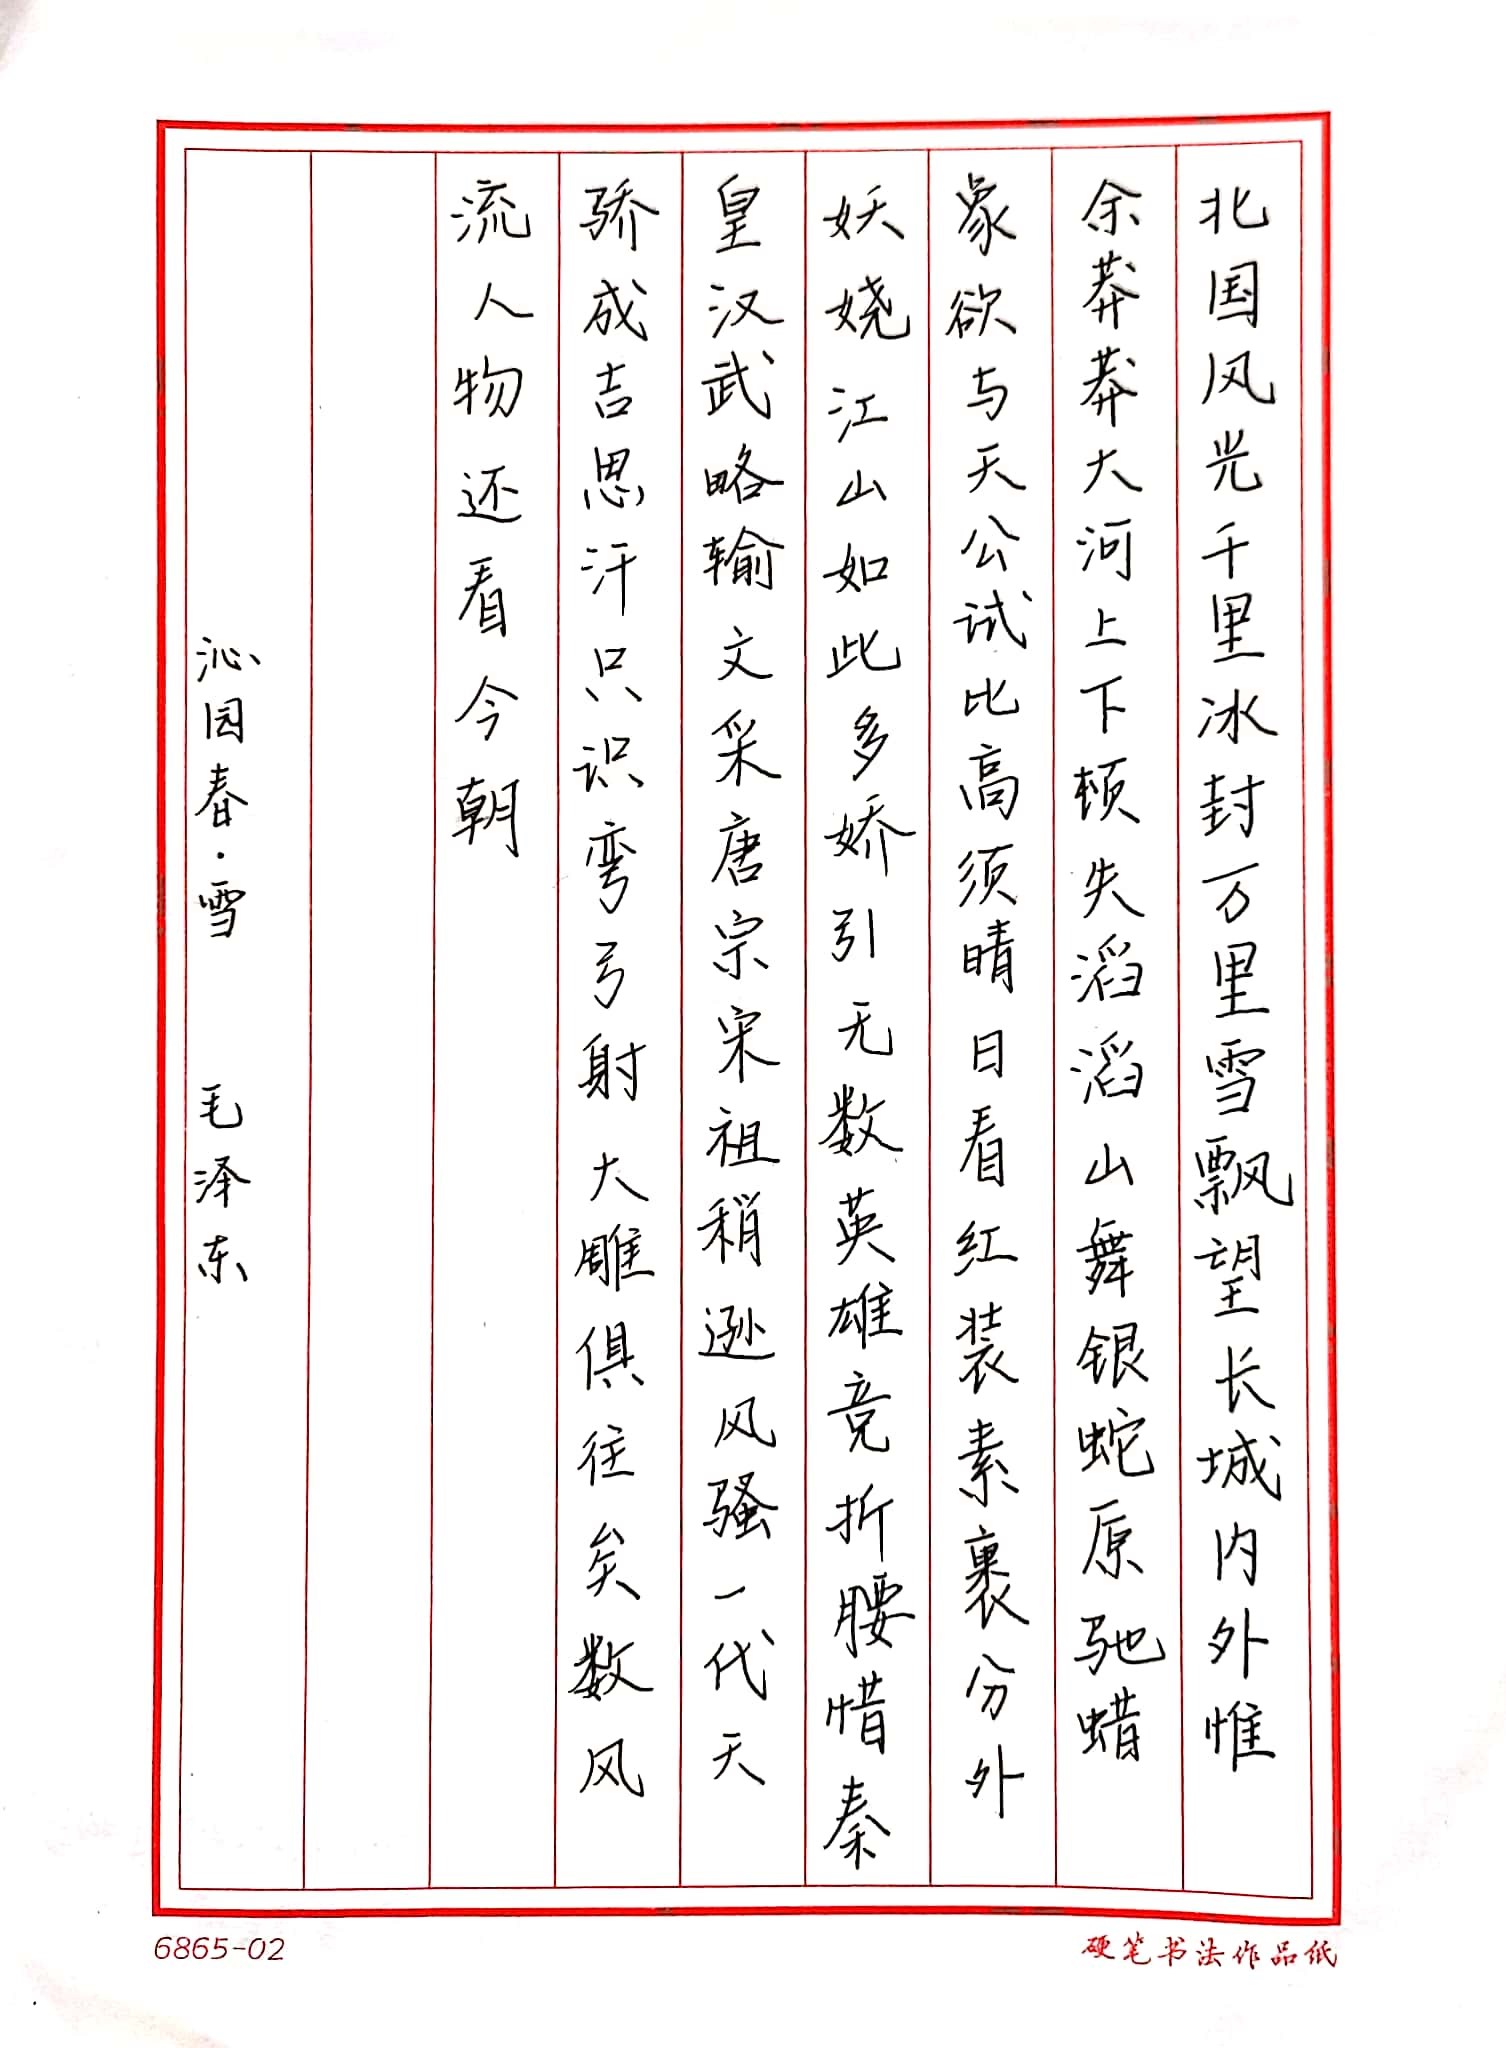 北国风光千里冰封万里雪飘望长城内外惟
余莽莽大河上下顿失滔滔山舞银蛇原驰蜡
象欲与天公试比高须晴日看红装素裹分外
妖娆江山如此多娇引无数英雄竞折腰惜秦
皇汉武略输文采唐宗宋祖稍逊风骚一代天
骄成吉思汗只识弯弓射大雕俱往矣数风
流人物还看今朝
沁园春·雪 毛泽东
6865-02
硬笔书法作品纸